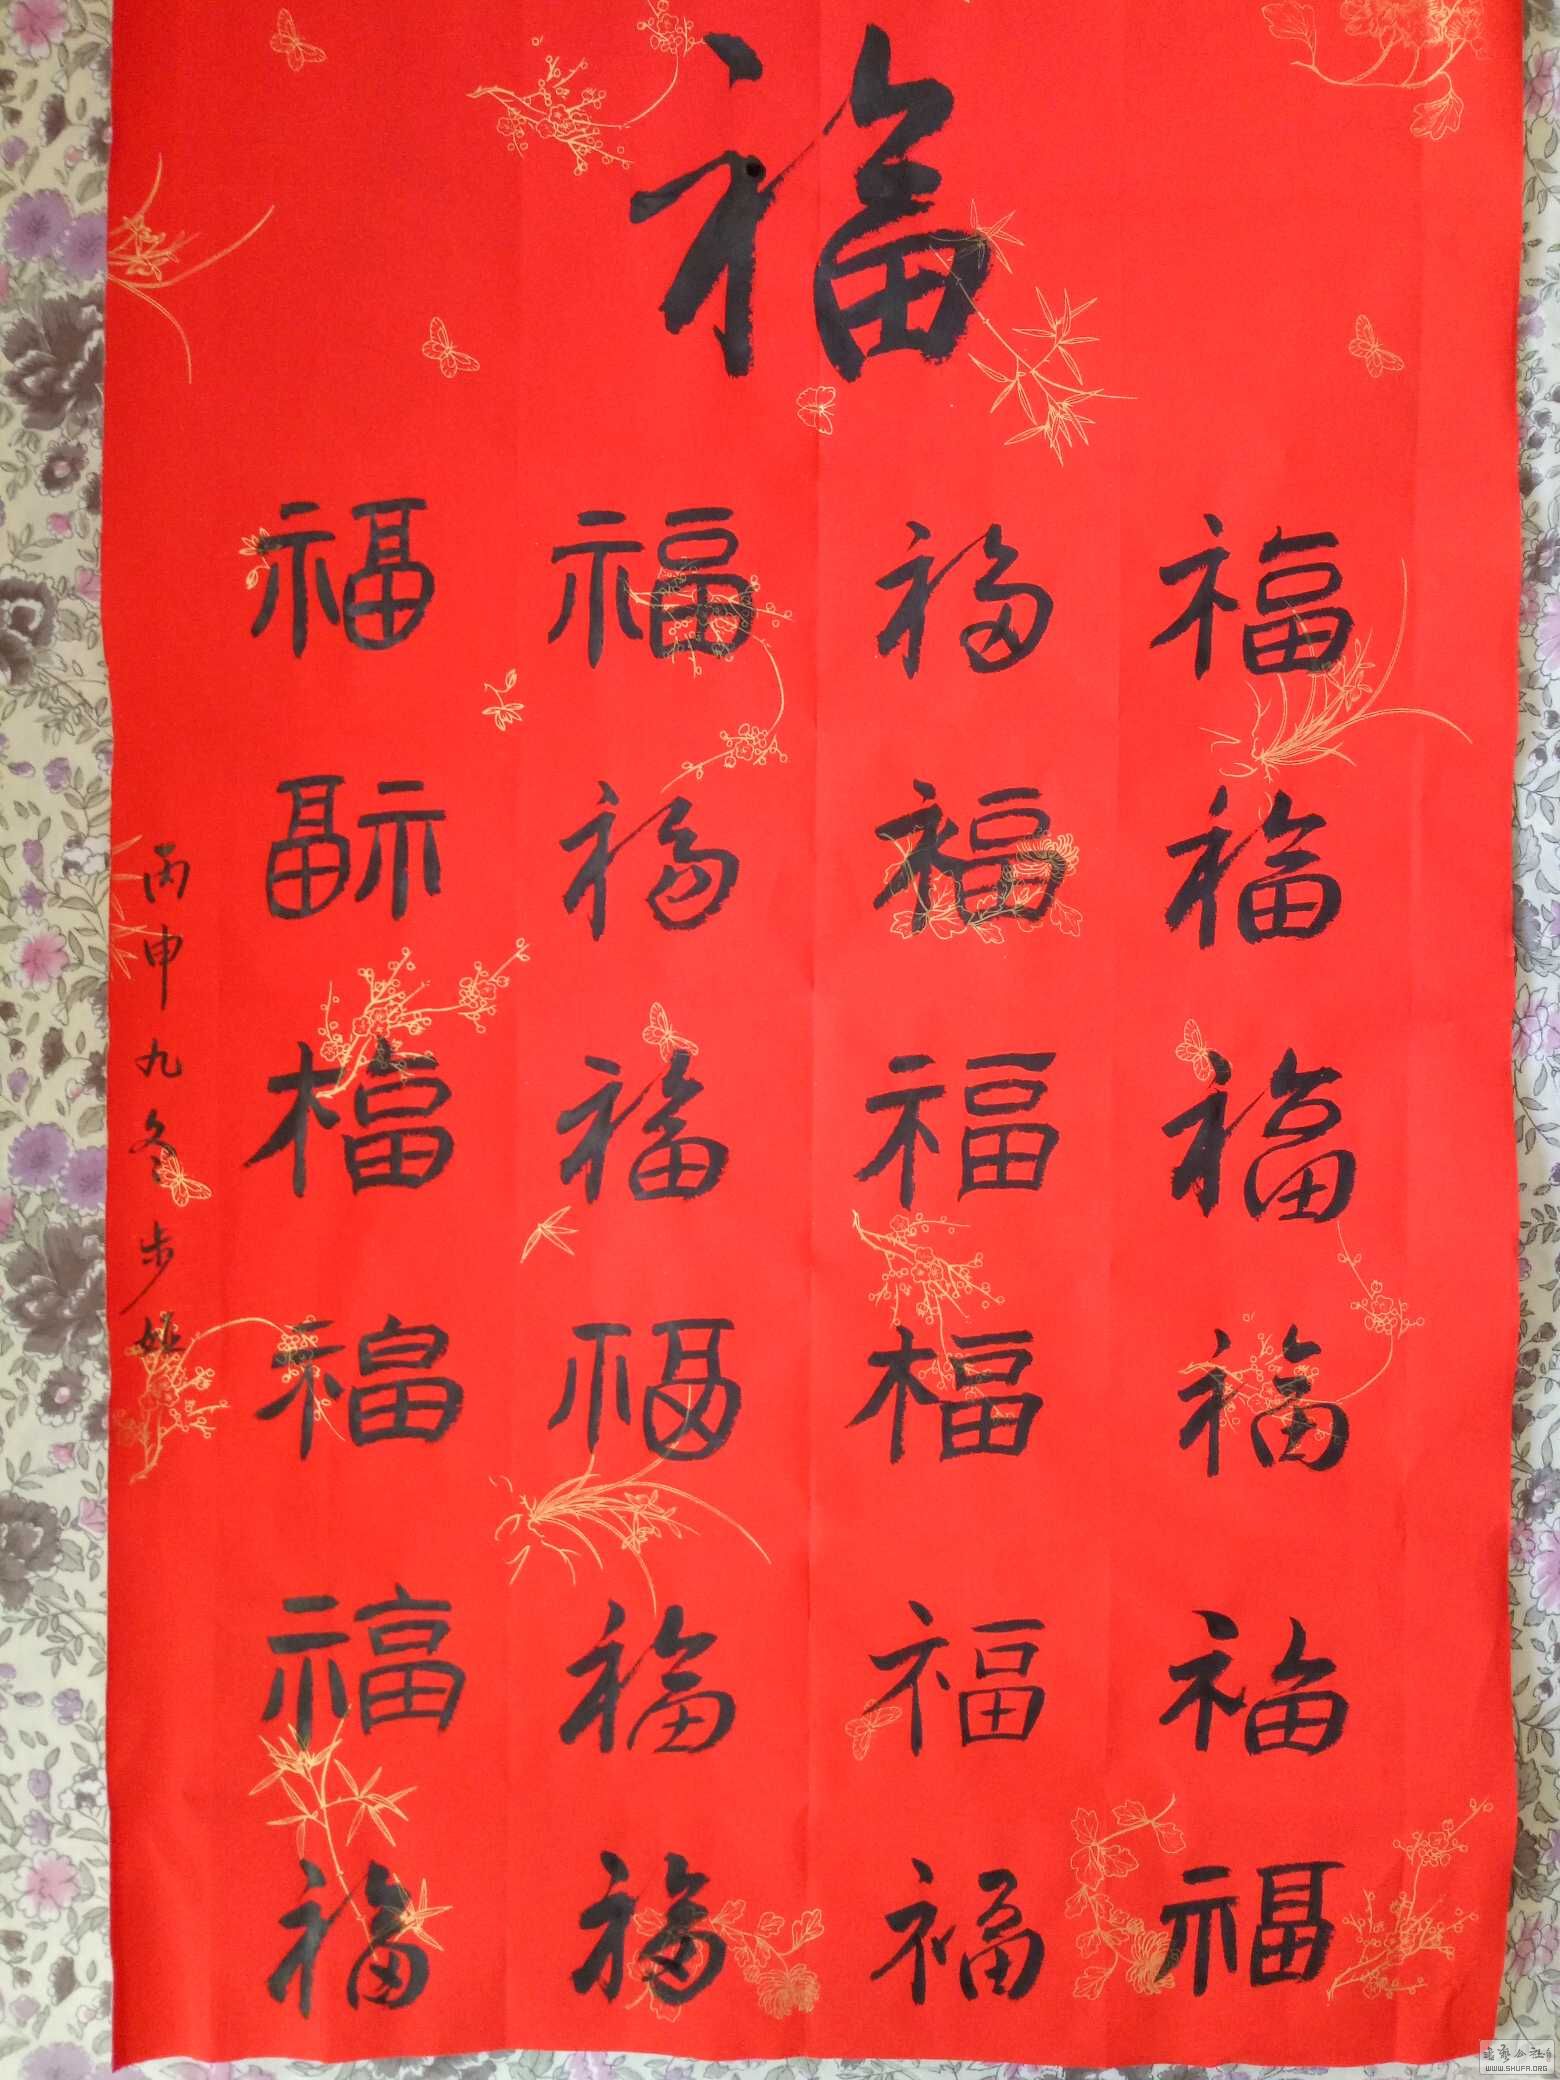 福
福 福 福 福
福 福 福 福
福 福 福 福
福 福 福 福
福 福 福 福
福 福 福 福
丙申九冬步
WWW.SHUFA.ORG